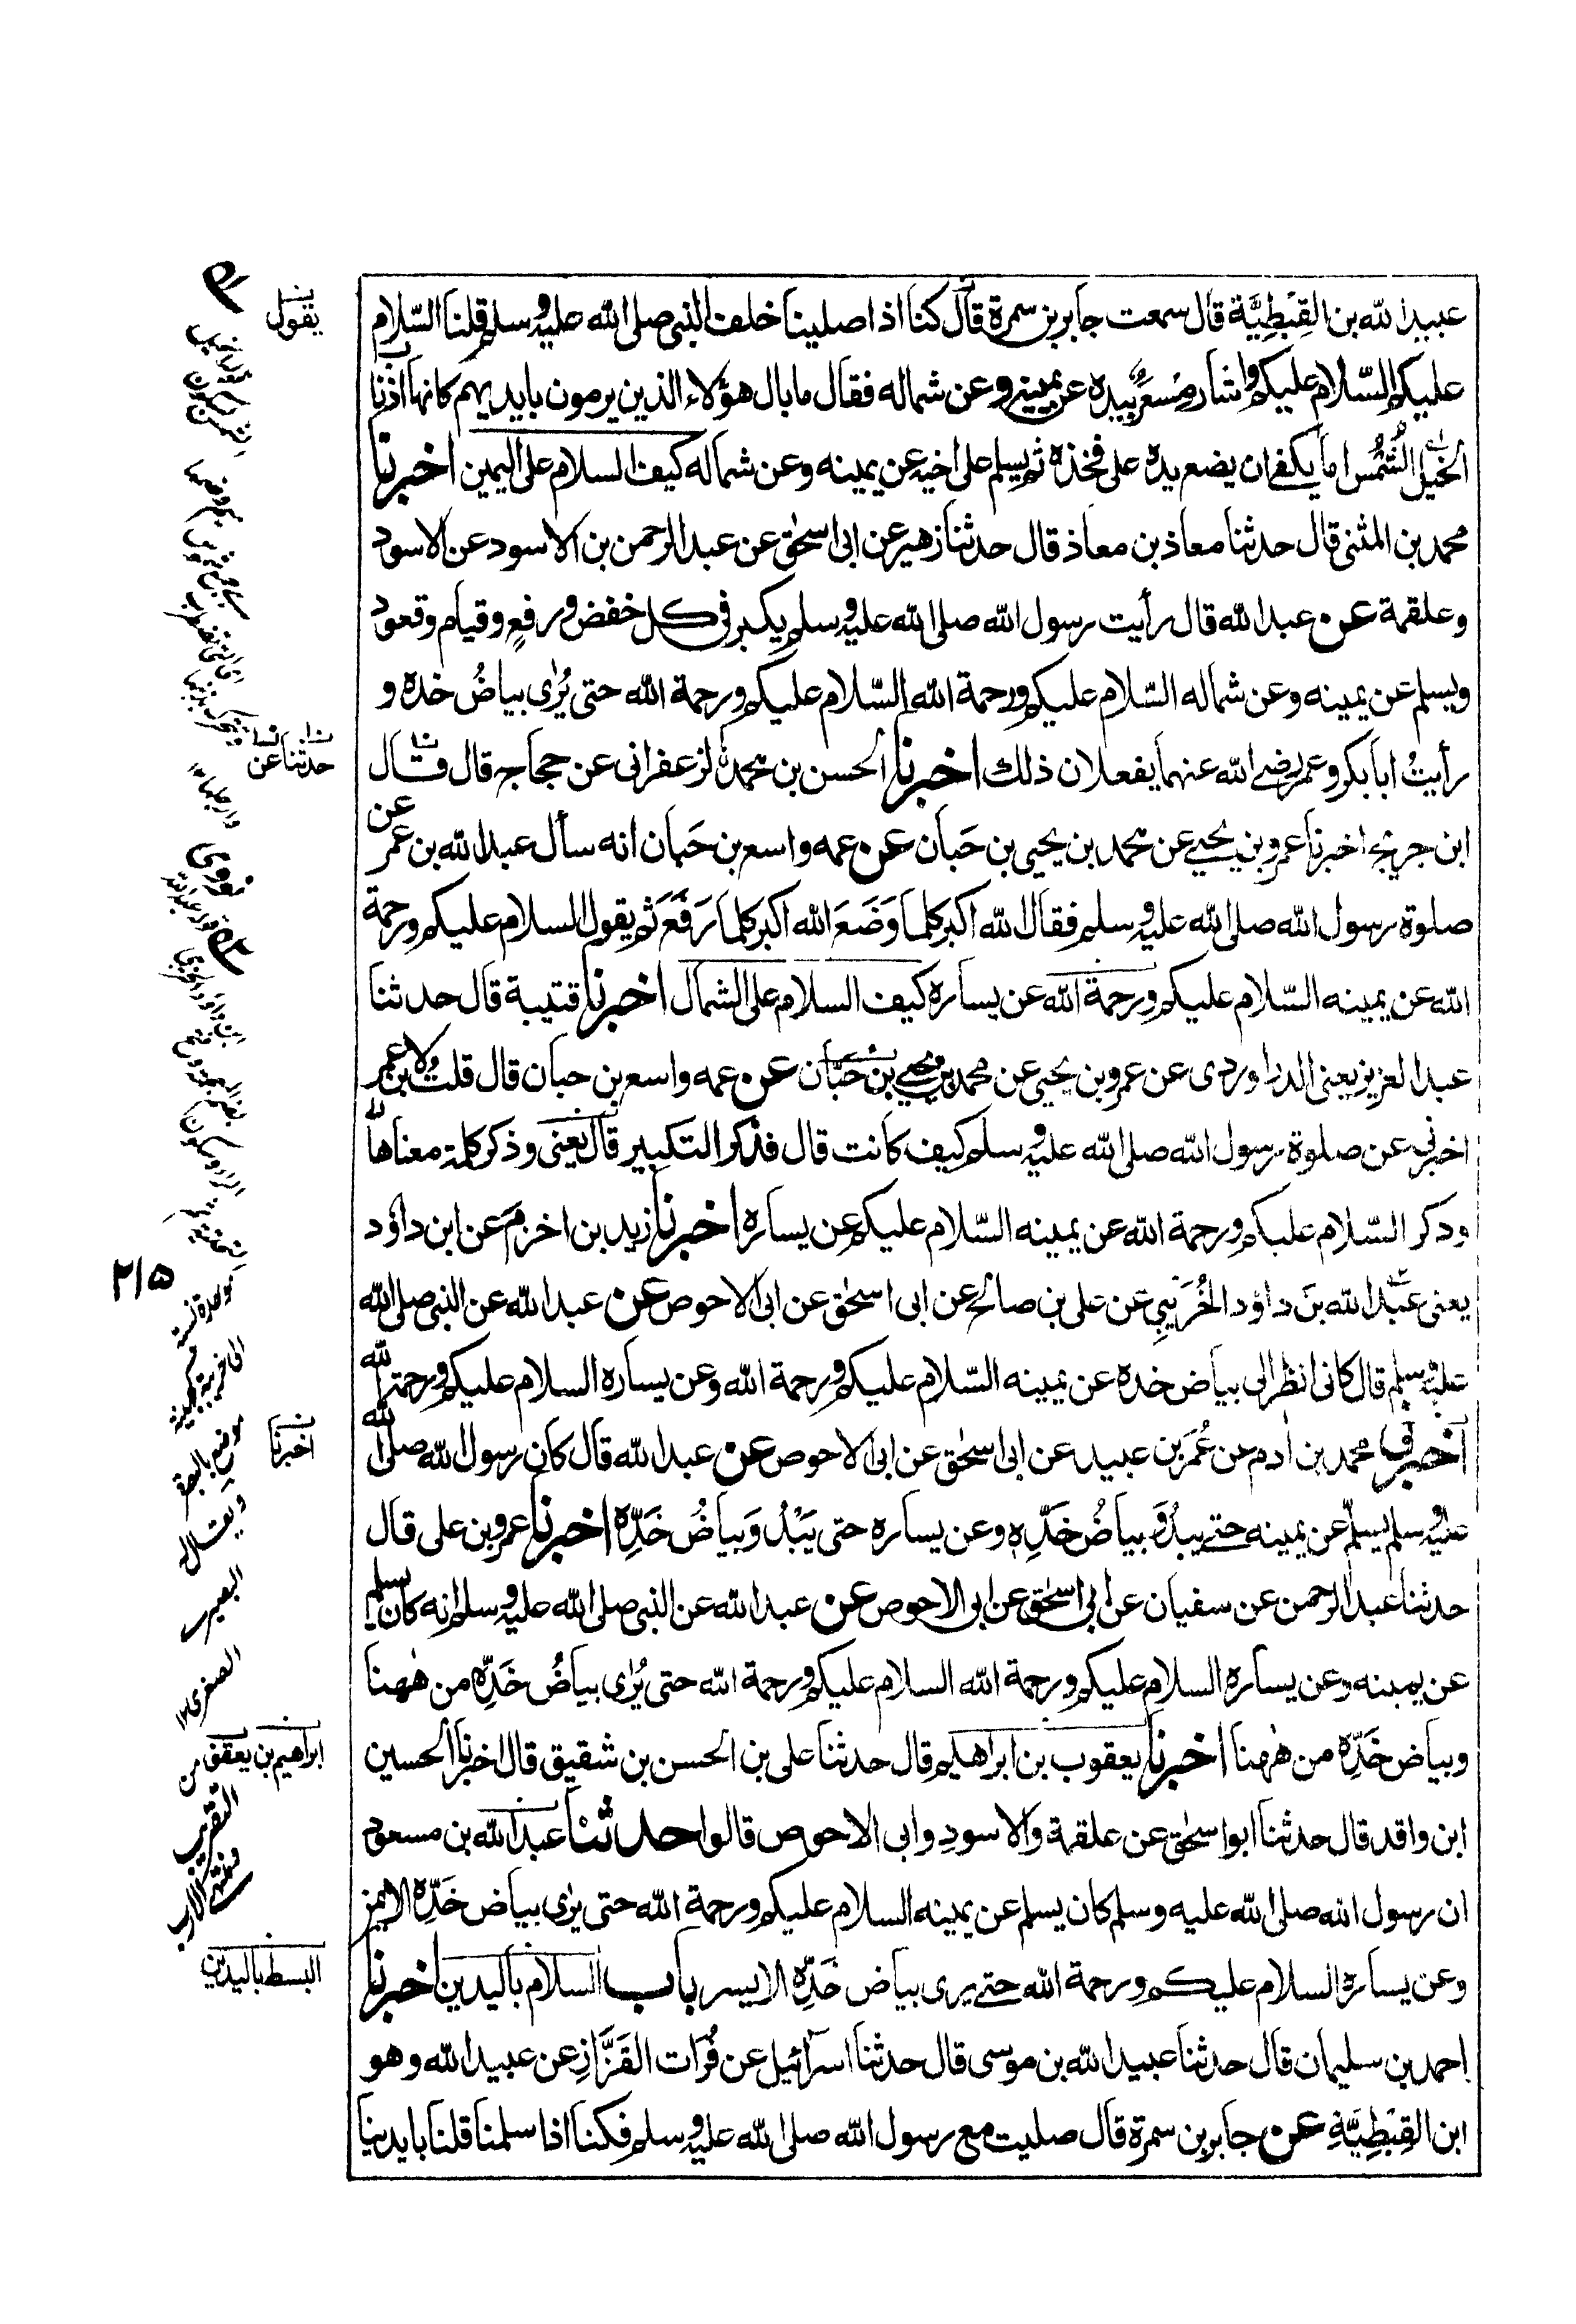 عبيد الله بن القِبْطِيَّة قال سمعت جابر بن سمرة قال كنا اذا صلينا خلف النبى صلى الله عليه وسلم قلنا السّلام
عليكم السّلام عليكم واشار مِسعَرٌ بيده عن يمينه وعن شماله فقال ما بال هؤلاء الذين يرمون بايديهم كانها اذناب
الخيل الشُّمُس اما يكفى ان يضع يده على فخذه ثم يسلم على اخيه عن يمينه وعن شماله كيف السلام على اليمين اخبرنا
محمد بن المثنى قال حدثنا معاذ بن معاذ قال حدثنا زهير عن ابى اسحٰق عن عبد الرحمن بن الاسود عن الاسود
وعلقمة عن عبد الله قال رأيت رسول الله صلى الله عليه وسلم يكبر فى كل خفض ورفعٍ وقيام وقعود
ويسلم عن يمينه وعن شماله السّلام عليكم ورحمة الله السّلام عليكم ورحمة الله حتى يُرٰى بياضُ خده و
رأيتُ ابا بكر وعمر رضى الله عنهما يفعلان ذلك اخبرنا الحسن بن محمد الزعفرانى عن حجاج قال قال
ابن جريج اخبرنا عمرو بن يحيى عن محمد بن يحيى بن حَبان عن عمه واسع بن حَبان انه سأل عبد الله بن عمر عن
صلوة رسول الله صلى الله عليه وسلم فقال الله اكبر كلما وَضَعَ الله اكبر كلما رَفَعَ ثم يقول السلام عليكم ورحمة
الله عن يمينه السّلام عليكم ورحمة الله عن يساره كيف السلام على الشمال اخبرنا قتيبة قال حدثنا
عبد العزيز يعنى الدراوردى عن عمرو بن يحيى عن محمد بن يحيى بن حَبَّان عن عمه واسع بن حبان قال قلت لابن عمر
اخبرنى عن صلوة رسول الله صلى الله عليه وسلم كيف كانت قال فذكر التكبير قال يعنى وذكر كلمة معناها
وذكر السّلام عليكم ورحمة الله عن يمينه السّلام عليكم عن يساره اخبرنا زيد بن اخزم عن ابن داؤد
يعنى عبد الله بن داؤد الخُرَيبِي عن على بن صالح عن ابى اسحٰق عن ابى الاحوص عن عبد الله عن النبى صلى الله
عليه وسلم قال كانى انظر الى بياض خده عن يمينه السّلام عليكم ورحمة الله وعن يساره السلام عليكم ورحمة الله
اخبرنى محمد بن اٰدم عن عُمَر بن عبيد عن ابى اسحٰق عن ابى الاحوص عن عبد الله قال كان رسول الله صلى الله
عليه وسلم يسلّم عن يمينه حتى يبدُوَ بياضُ خَدِّهٖ وعن يساره حتى يَبْدُوَ بياضُ خَدِّهٖ اخبرنا عمرو بن على قال
حدثنا عبد الرحمن عن سفيان عن ابى اسحٰق عن ابى الاحوص عن عبد الله عن النبى صلى الله عليه وسلم انه كان يسلم
عن يمينه وعن يساره السلام عليكم ورحمة الله السلام عليكم ورحمة الله حتى يُرٰى بياضُ خَدِّهٖ من هٰهنا
وبياض خَدِّهٖ من هٰهنا اخبرنا يعقوب بن ابراهيم قال حدثنا على بن الحسن بن شقيق قال اخبرنا الحسين
ابن واقد قال حدثنا ابو اسحٰق عن علقمة والاسودِ وابى الاحوص قالوا حدثنا عبد الله بن مسعود
ان رسول الله صلى الله عليه وسلم كان يسلم عن يمينه السلام عليكم ورحمة الله حتى يرٰى بياض خَدِّهٖ الايمن
وعن يساره السلام عليكم ورحمة الله حتى يرى بياض خَدِّهٖ الايسر باب السلام باليدين اخبرنا
احمد بن سليمان قال حدثنا عبيد الله بن موسى قال حدثنا اسرائيل عن فُرَات القَزَّازِ عن عبيد الله وهو
ابن القِبْطِيَّةِ عن جابر بن سمرة قال صليت مع رسول الله صلى الله عليه وسلم فكنا اذا سلمنا قلنا بايدينا
يقول
حدثنا عن
اخبرنا
ابراهيم بن يعقوب
البسط باليدين
نووى
٢١٥
موضع بالبصرة
ويقال له
البصرة
الصغرى ١٢
من
التقريب
ومنتهى الارب